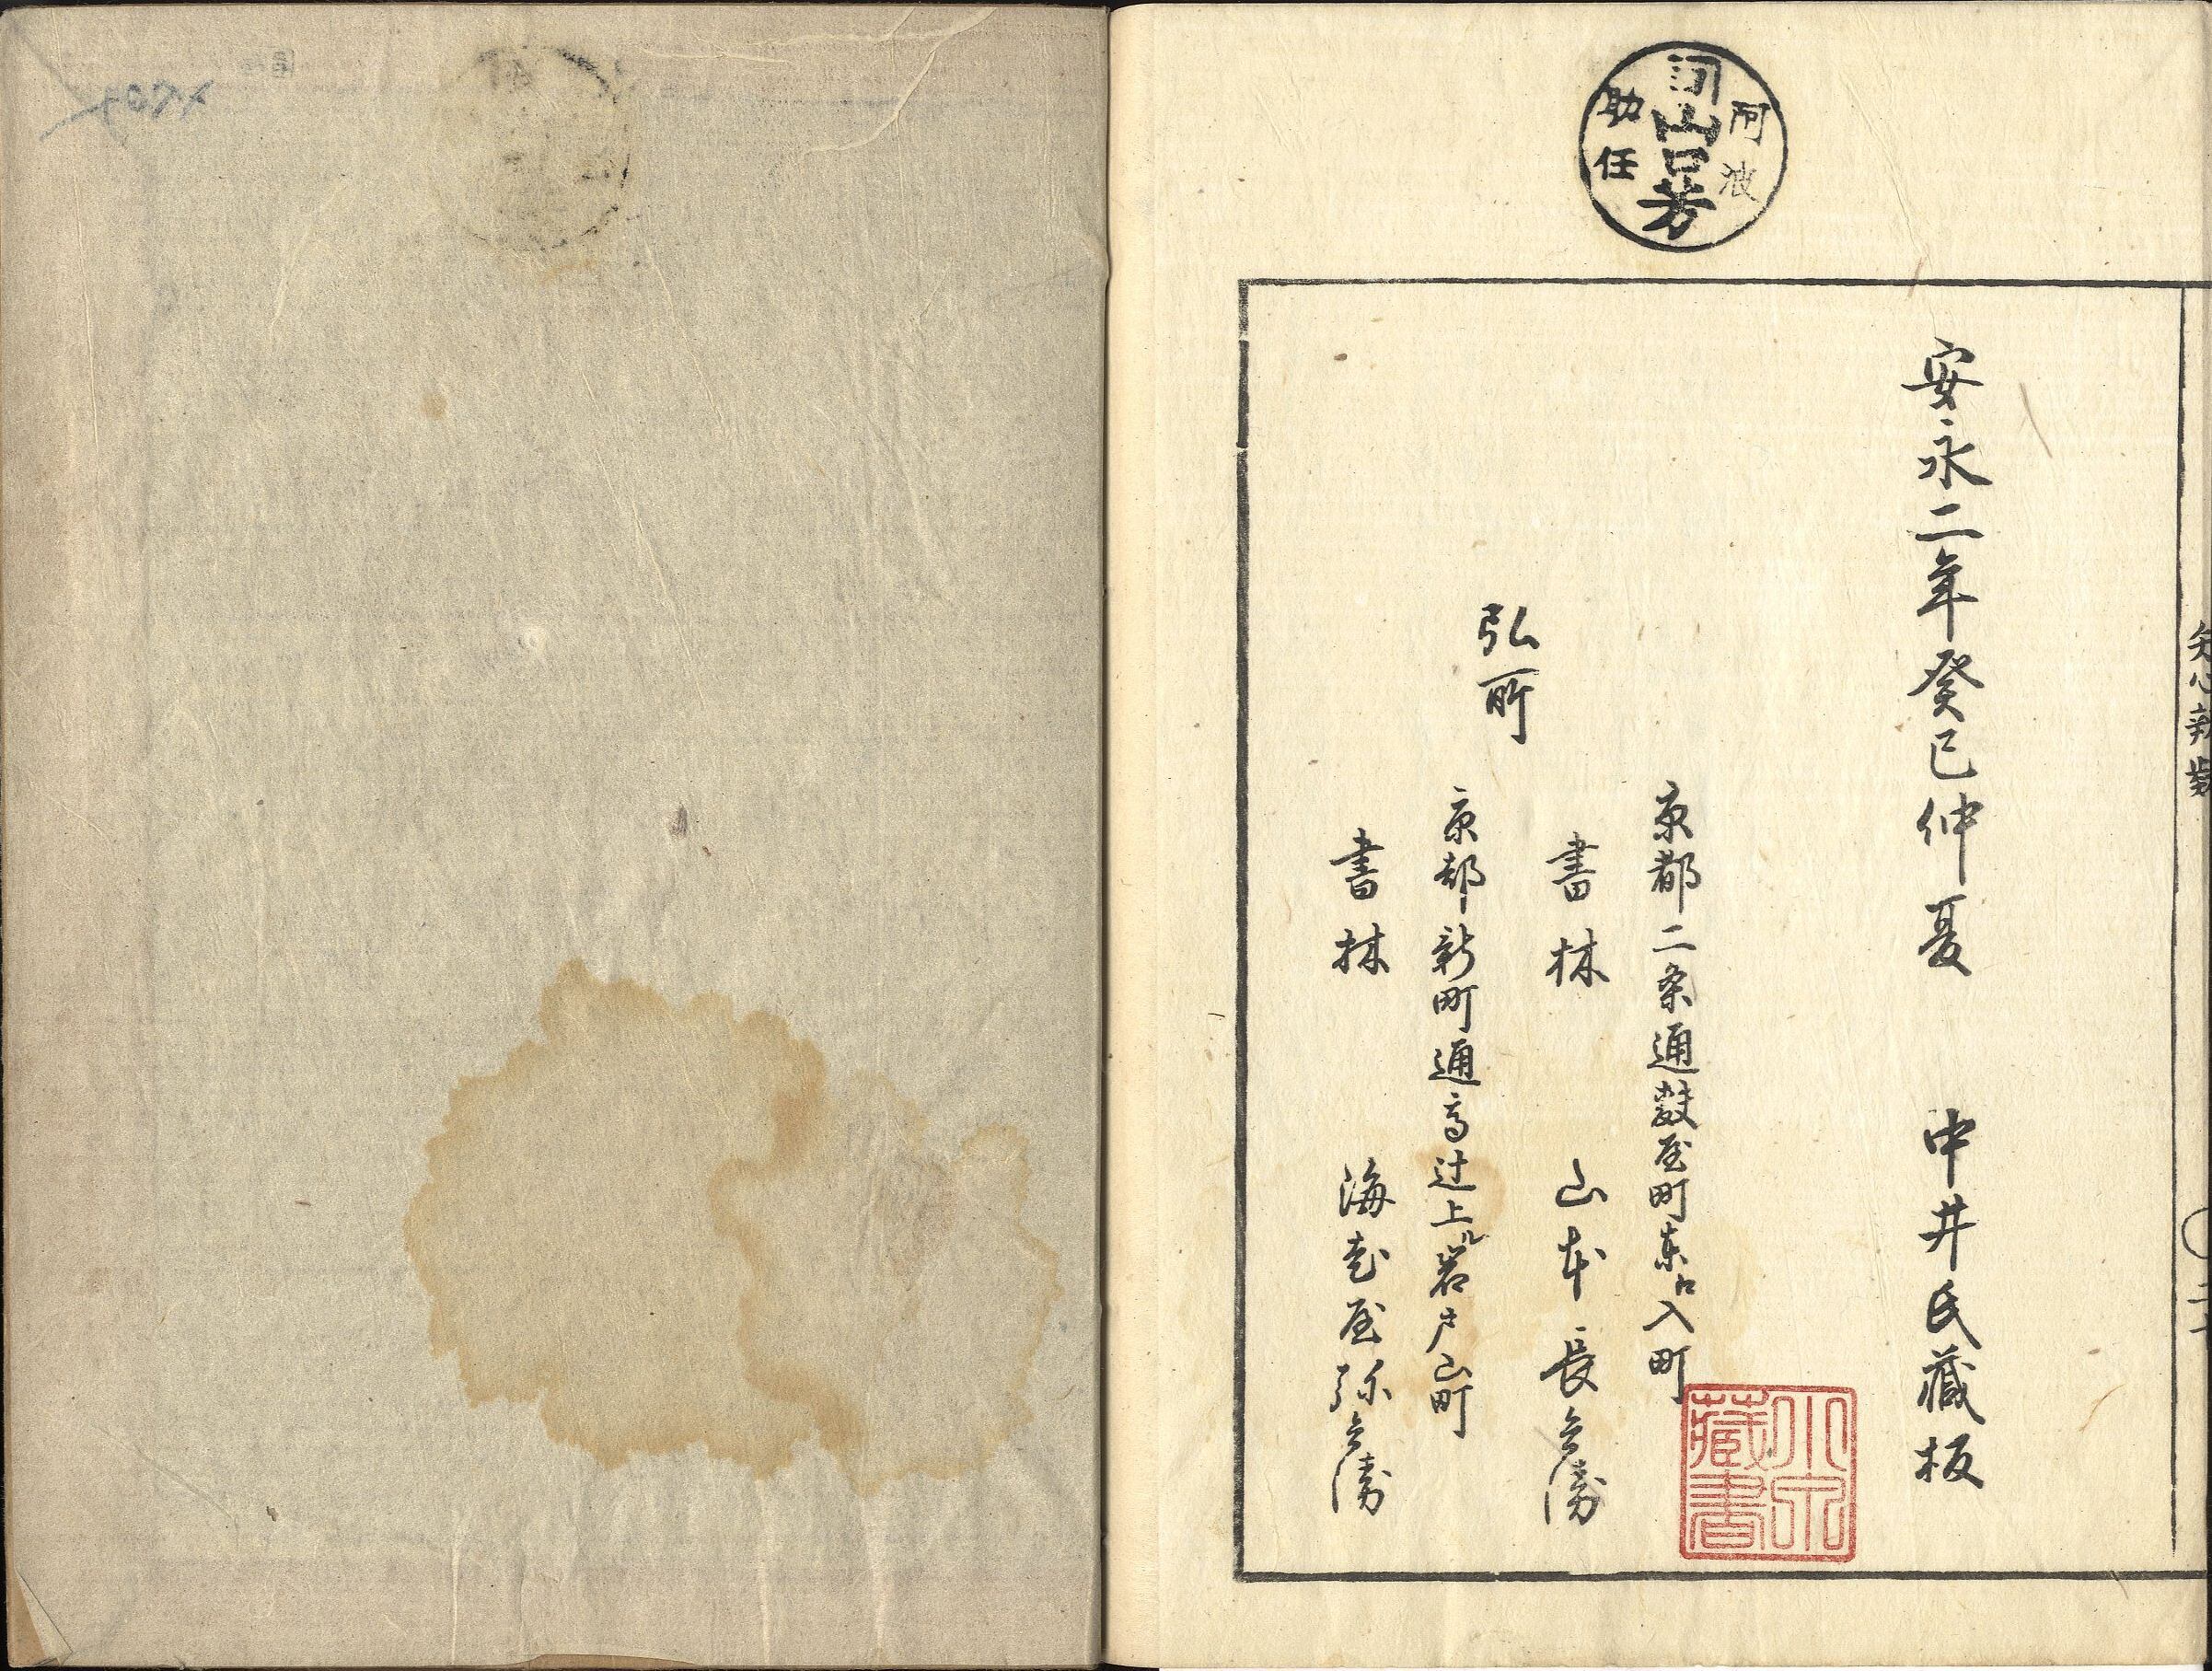 阿波
山口芳
助任
安永二年癸巳仲夏　中井氏藏板
京都二条通麩屋町東ヘ入町
書林　山本長兵衛
弘所
京都新町通高辻上ル岩戸山町
書林　海老屋弥兵衛
藏書